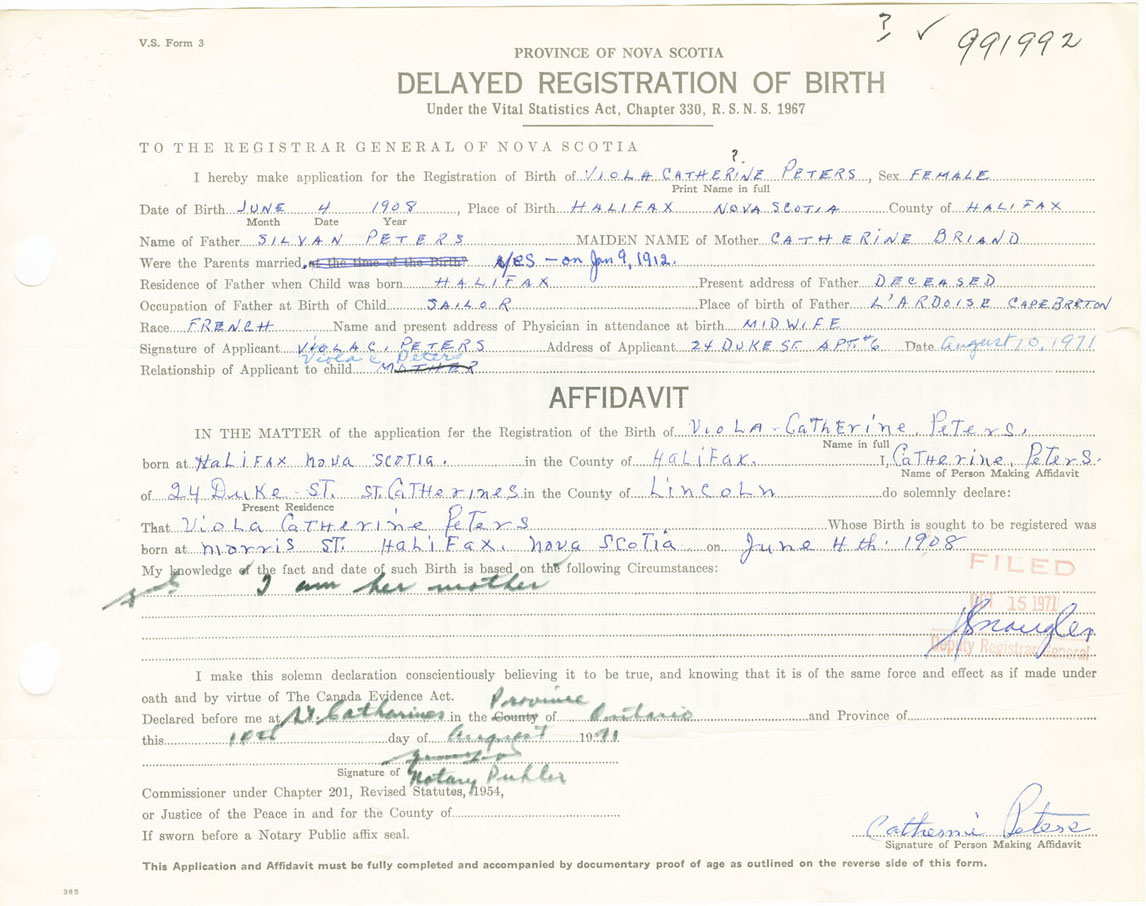 V.S. Form 3
? ✓ 991992
PROVINCE OF NOVA SCOTIA
DELAYED REGISTRATION OF BIRTH
Under the Vital Statistics Act, Chapter 330, R. S. N. S. 1967
TO THE REGISTRAR GENERAL OF NOVA SCOTIA
?
I hereby make application for the Registration of Birth of VIOLA CATHERINE PETERS, Sex FEMALE
Print Name in full
Date of Birth JUNE 4 1908, Place of Birth HALIFAX NOVA SCOTIA County of HALIFAX
Month Date Year
Name of Father SILVAN PETERS MAIDEN NAME of Mother CATHERINE BRIAND
Were the Parents married, at the time of the Birth? YES - on Jan 9, 1912.
Residence of Father when Child was born HALIFAX Present address of Father DECEASED
Occupation of Father at Birth of Child SAILOR Place of birth of Father L'ARDOISE CAPE BRETON
Race FRENCH Name and present address of Physician in attendance at birth MIDWIFE
Signature of Applicant VIOLA C. PETERS Address of Applicant 24 DUKE ST. APT. #6 Date August 10, 1971
Viola C. Peters
Relationship of Applicant to child MOTHER
AFFIDAVIT
IN THE MATTER of the application for the Registration of the Birth of VIOLA - CATHERINE, Peters,
Name in full
born at HALIFAX NOVA SCOTIA. in the County of HALIFAX. I, CATHERINE, Peters.
Name of Person Making Affidavit
of 24 Duke - ST. ST. CATHERINES in the County of LINCOLN do solemnly declare:
Present Residence
That VIOLA CATHERINE PETERS Whose Birth is sought to be registered was
born at MORRIS ST. HALIFAX. NOVA SCOTIA on June 4th. 1908
My knowledge of the fact and date of such Birth is based on the following Circumstances:
FILED
I am her mother
OCT 15 1971
Deputy Registrar General
I make this solemn declaration conscientiously believing it to be true, and knowing that it is of the same force and effect as if made under
oath and by virtue of The Canada Evidence Act.
Province
Declared before me at St. Catharines in the County of Ontario and Province of
this 10th day of August 1971
Signature of Notary Public
Commissioner under Chapter 201, Revised Statutes, 1954,
or Justice of the Peace in and for the County of
If sworn before a Notary Public affix seal.
Catherine Peters
Signature of Person Making Affidavit
This Application and Affidavit must be fully completed and accompanied by documentary proof of age as outlined on the reverse side of this form.
385